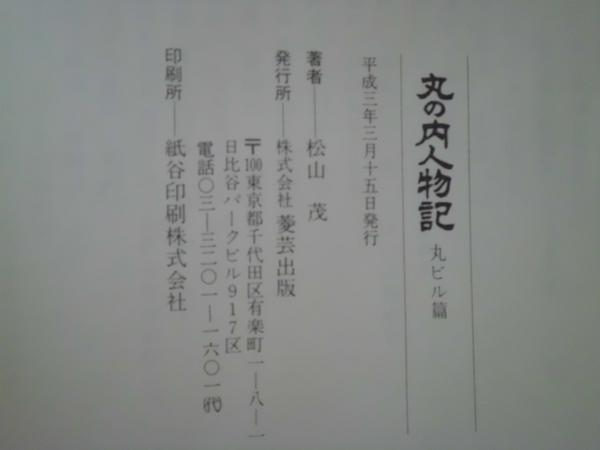 丸の内人物記 丸ビル篇
平成三年三月十五日発行
著者――松山 茂
発行所――株式会社 菱芸出版
〒100東京都千代田区有楽町一―八―一
日比谷パークビル917区
電話〇三―三二〇一―一六〇一㈹
印刷所――紙谷印刷株式会社